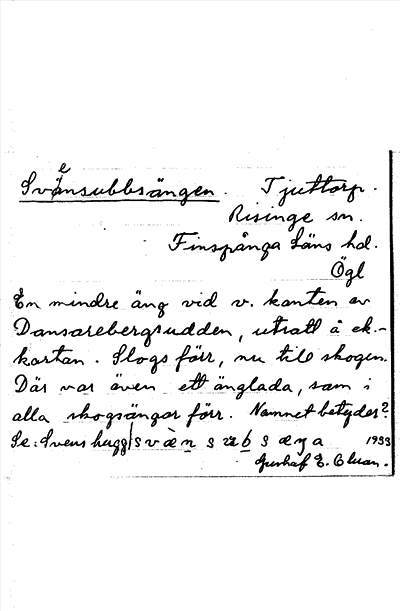 Svensubbsängen. Tjuttorp.
Risinge sn.
Finspånga Läns hd.
Ögl
En mindre äng vid v. kanten av
Dansarebergsudden, utsatt å ek.-
kartan. Slogs förr, nu till skogen.
Där var även ett änglada, som i
alla skogsängar förr. Namnet betyder?
Se: Svens hugg/svæ̀n subsæŋa 1933
Gustaf E.